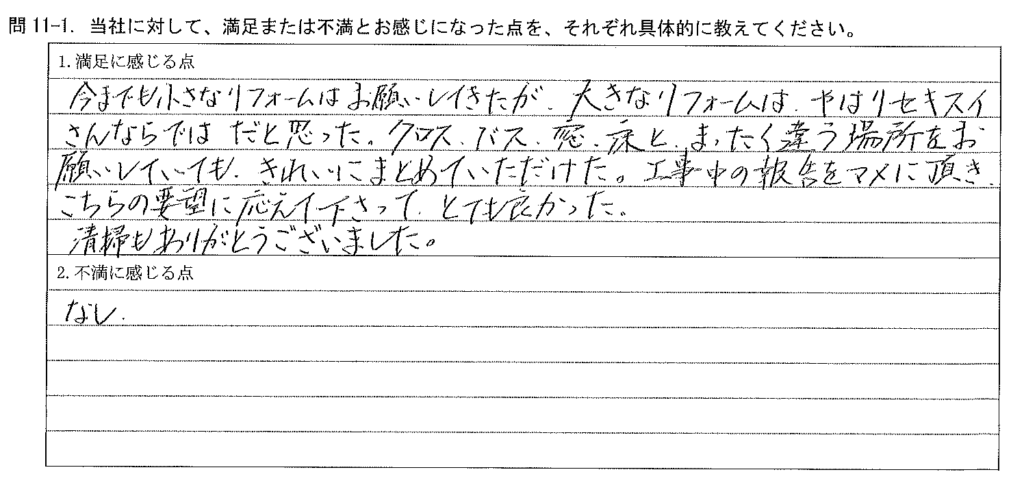 問 11-1. 当社に対して、満足または不満とお感じになった点を、それぞれ具体的に教えてください。
1. 満足に感じる点
今までも小さなリフォームはお願いしてきたが、大きなリフォームは、やはりセキスイ
さんならでは だと思った。クロス、バス、窓、床と、まったく違う場所をお
願いしていても、きれいにまとめていただけた。工事中の報告をマメに頂き、
こちらの要望に応えて下さって、とても良かった。
清掃もありがとうございました。
2. 不満に感じる点
なし.